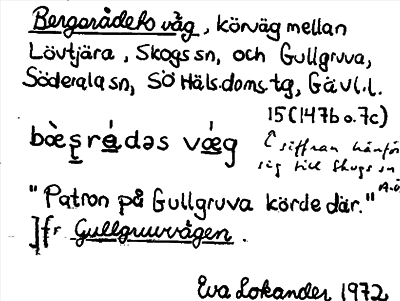 Bergsrådets väg, körväg mellan
Lövtjära, Skogs sn, och Gullgruva,
Söderala sn, SÖ Häls. doms. tg, Gävl.l.
15(147b o. 7c)
bòe̜s̜rádəs vǽg
siffran hänför
sig till Skogs sn
"Patron på Gullgruva körde där."
jfr Gullgruvvägen.
Eva Lokander 1972